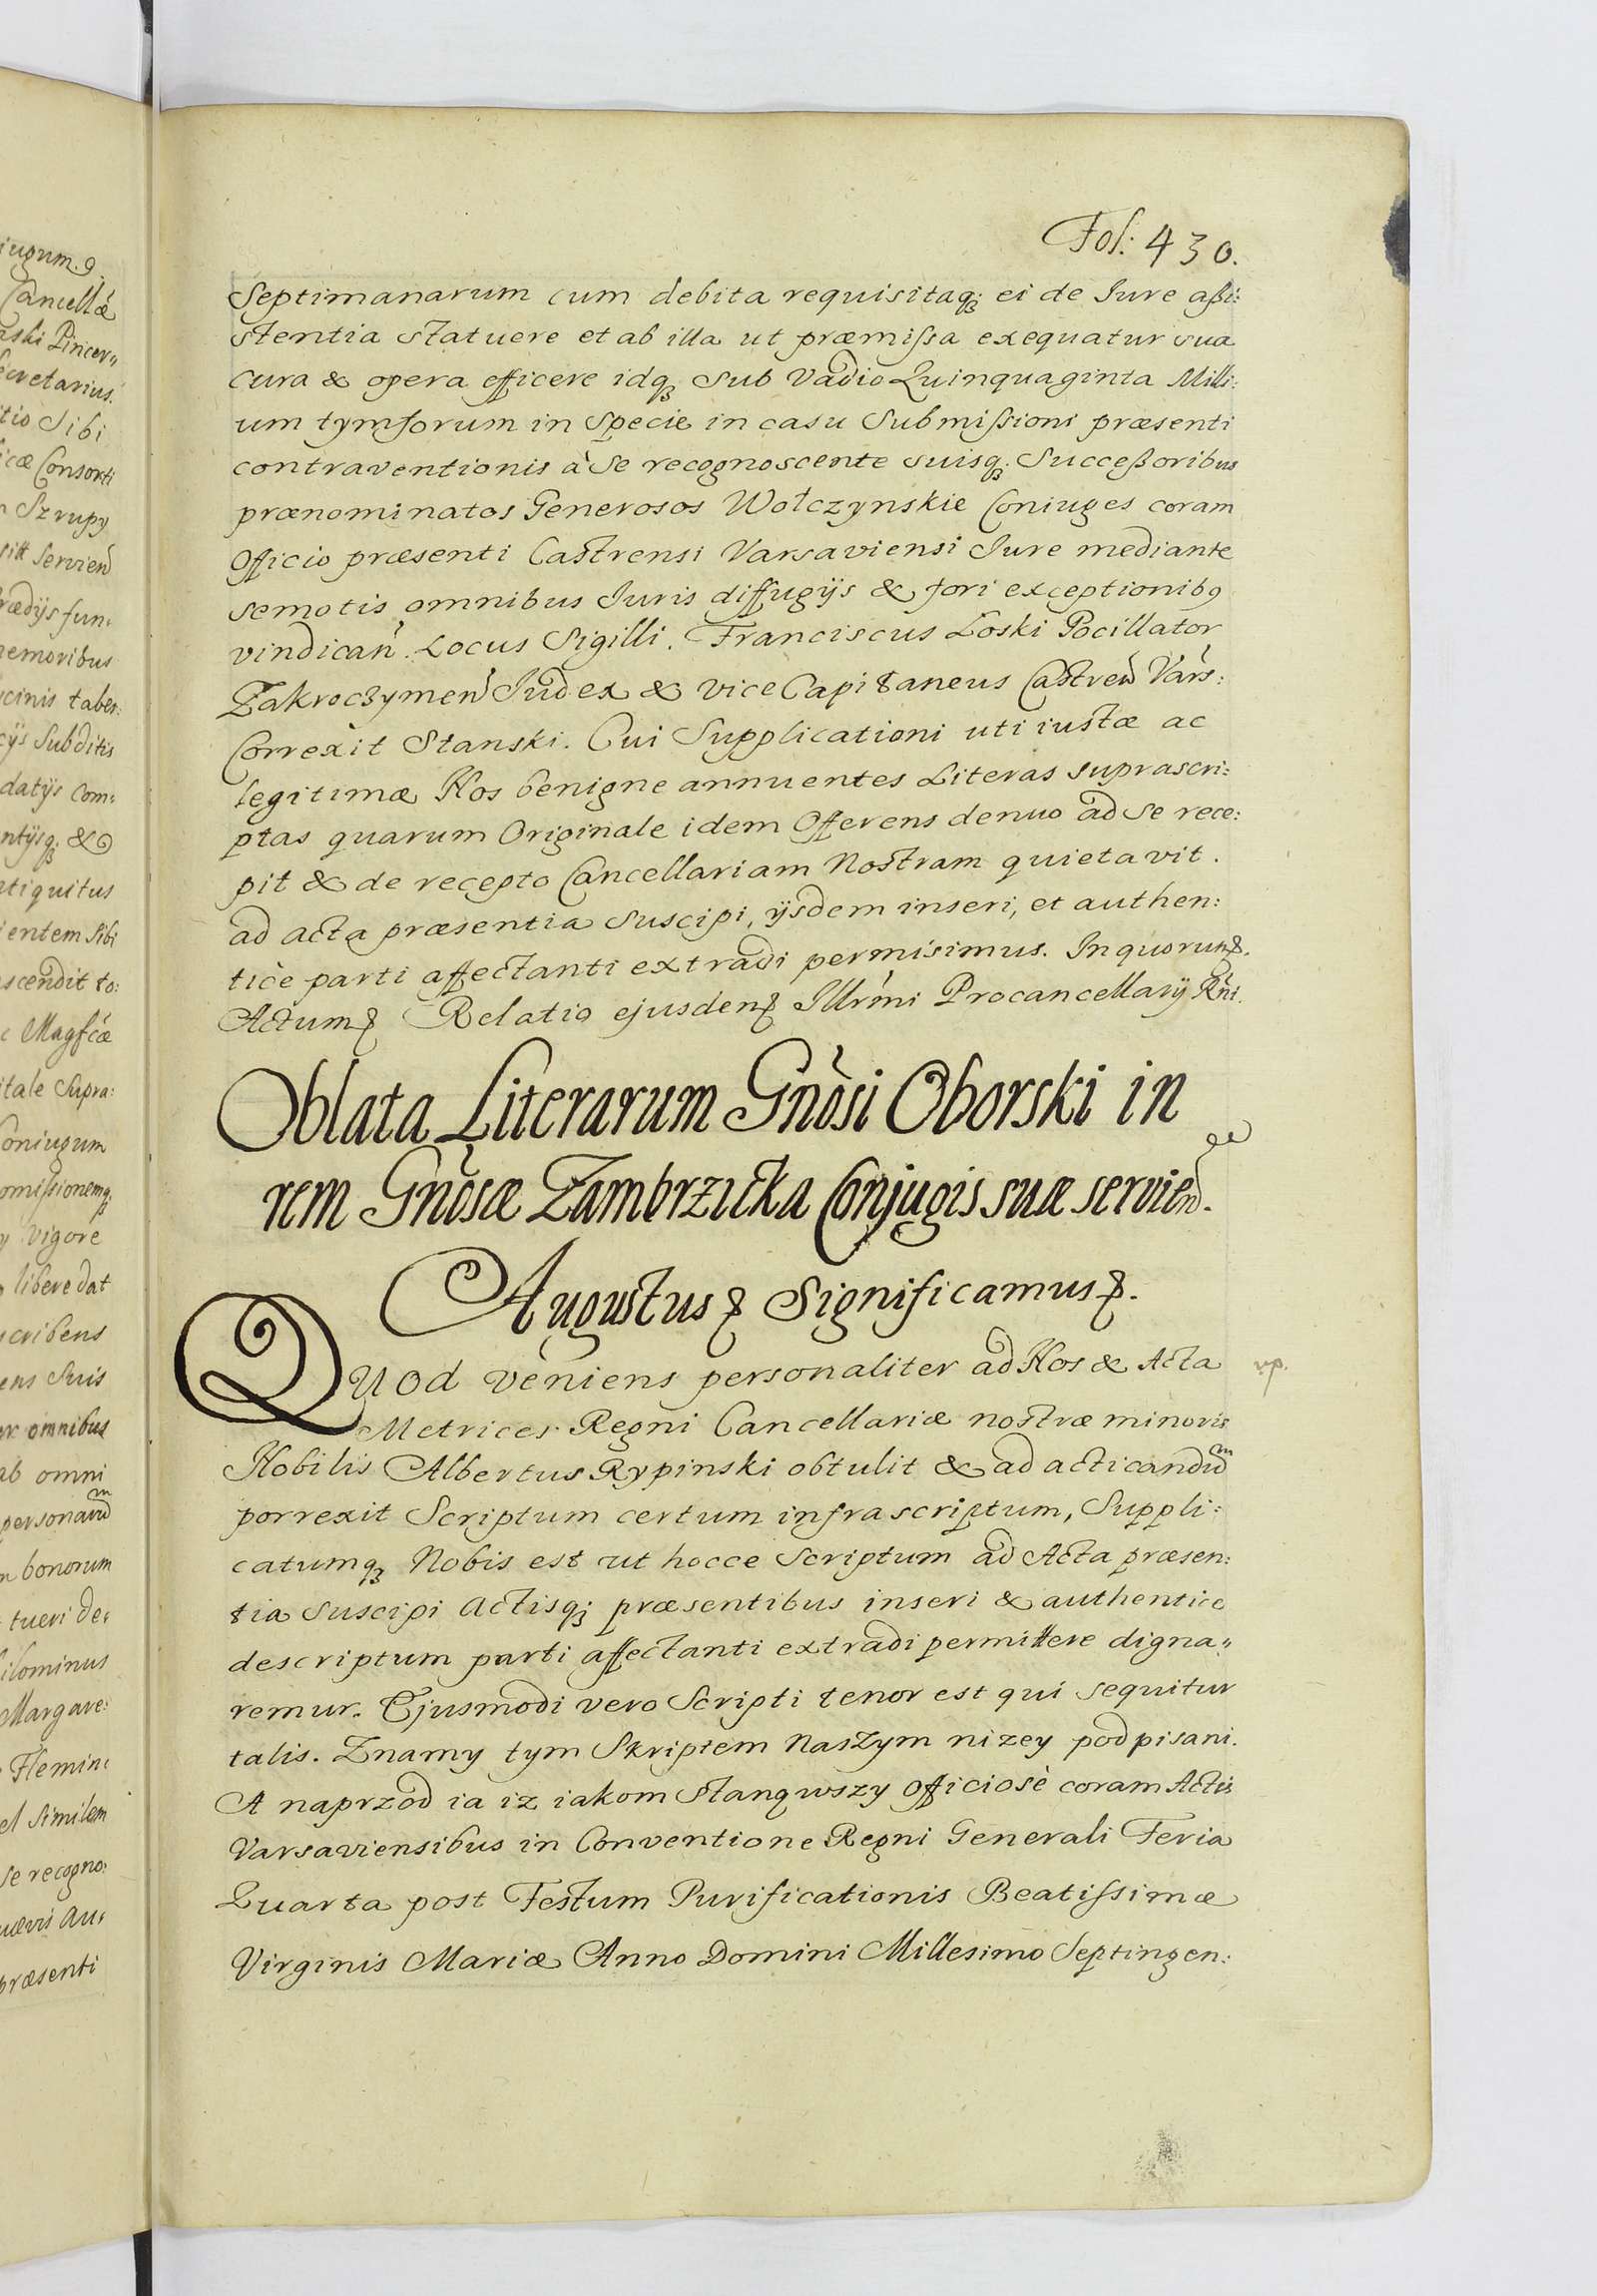 iugum. 9
Cancellæ
nski Pincer„
Secretarius.
itio Sibi
icæ Consorti
Szrupy
sitt Servień
rædÿs fun:
nemoribus
icinis taber:
cÿs Subditis
datÿs Com:
ntÿsq; &
ntiquitus
ientem Sibi
scendit to:
Magfcæ
itale Supra:
Coniugum
omissionemq;
vigore
libere dat
scribens
ens Suis
ex omnibus
ab omni
personarum
bonorum
tueri de:
ilominus
Margare:
Flemin:
el Similem
Se recogno:
uævis Au:
præsenti
Fol: 430.
Septimanarum cum debita requisitaq; ei de Iure aßi:
stentia statuere et ab illa ut præmissa exequatur sua
cura & opera efficere idq; Sub Vadio Quinquaginta Milli:
um tymforum in Specie in casu Submissioni præsenti
contraventionis à Se recognoscente suisq; Succeßoribus
prænominatos Generosos Wołczynskie Coniuges coram
Officio præsenti Castrensi Varsaviensi Iure mediante
semotis omnibus Iuris diffugÿs & fori exceptionibq
vindicań. Locus Sigilli. Franciscus Łoski Pocillator
Zakroczymeń Iudex & viceCapitaneus Castreń Vars:
Correxit Stanski. Cui Supplicationi uti iustæ ac
legitimæ Nos benigne annuentes Literas suprascri:
ptas quarum Originale idem Offerens denuo ad se rece:
pit & de recepto Cancellariam Nostram quietavit.
ad acta præsentia suscipi, ÿsdem inseri, et authen:
tice parti affectanti extradi permisimus. In quorum &.
Actum & Relatio ejusdem & Illrmi Procancellarÿ Rńi.
Oblata Literarum Gnòsi Oborski in
rem Gnòsæ Zambrzicka Conjugis suæ servień.
Augustus & Significamus &.
Quod veniens personaliter ad Nos & Acta
vp.
Metrices Regni Cancellariæ nostræ minoris
Nobilis Albertus Rypinski obtulit & ad acticandum
porrexit Scriptum certum infrascriptum, Suppli:
catumq; Nobis est ut hocce Scriptum ad Acta præsen:
tia Suscipi Actisq; præsentibus inseri & authentice
descriptum parti affectanti extradi permittere digna„
remur. Ejusmodi vero Scripti tenor est qui sequitur
talis. Znamy tym Skriptem naszym nizey podpisani.
A naprzod ia iz iakom Stanąwszy Officiosè coram Actis
Varsaviensibus in Conventione Regni Generali Feria
Quarta post Festum Purificationis Beatissimæ
Virginis Mariæ Anno Domini Millesimo Septingen: